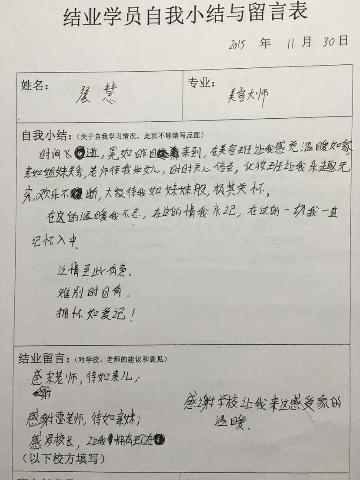 结业学员自我小结与留言表
2015 年 11 月 30 日
姓名: 展慧 专业: 美容大师
自我小结:(关于自我学习情况,此页不够请写反面)
时间飞逝,晃如昨日来到,在美容班让我感充温暖如家
亲如姐妹关系,老师待我如女儿,时时关心信去,化妆班让我乐趣无
穷,欢乐不断,大叔待我如妹妹般,极其关怀。
在这的温暖我不忘,在这的情我永记,在这的一切我一直
记怀入中
这情至此有意
难别时日有
拥怀如爱记!
结业留言:(对学校,老师的建议和意见)
感谢宋老师,待如亲儿;
感谢学校让我来这感受家的
温暖.
感谢雷老师,待如亲妹;
感谢 校长,让我拥有现在
(以下校方填写)